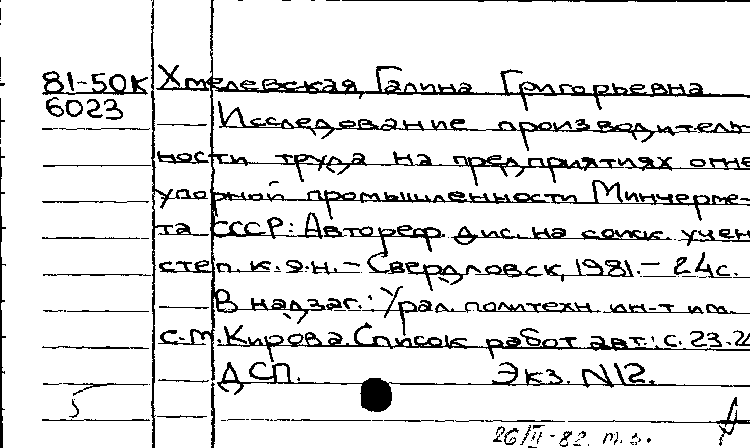 81-50К Хмелевская, Галина Григорьевна
6023 Исследование производитель-
ности труда на предприятиях огне
упорной промышленности Минчерме-
та СССР: Автореф. дис. на соиск. учен
степ. к.э.н. – Свердловск, 1981. – 24с.
В надзаг.: Урал. политехн. ин-т им.
С.М. Кирова. Список работ авт.: с. 23-2
ДСП. Экз. N12.
5
26/II-82. т.з.